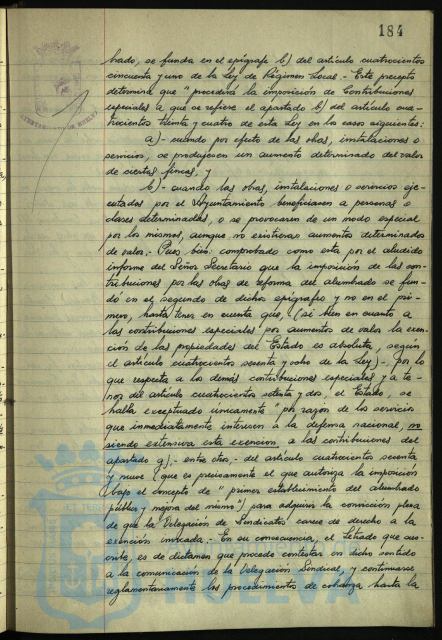 184
bado, se funda en el epígrafe b) del artículo cuatrocientos
cincuenta y uno de la Ley de Régimen Local.- Este precepto
determina que "procederá la imposición de Contribuciones
especiales a que se refiere el apartado b) del artículo cua-
trocientos treinta y cuatro de esta Ley en los casos siguientes:
a)- cuando por efecto de las obras, instalaciones o
servicios, se produjesen un aumento determinado del valor
de ciertas fincas, y
b)- cuando las obras, instalaciones o servicios eje-
cutados por el Ayuntamiento beneficiasen a personas o
clases determinadas, o se provocaren de un modo especial
por los mismos, aunque no existieran aumentos determinados
de valor.- Pues bien: comprobado como está por el aludido
informe del Señor Secretario que la imposición de las con-
tribuciones por las obras de reforma del alumbrado se fun-
dó en el segundo de dichos epígrafes y no en el pri-
mero, basta tener en cuenta que, (si bien en cuanto a
las contribuciones especiales por aumentos de valor la exen-
ción de las propiedades del Estado es absoluta, según
el artículo cuatrocientos sesenta y ocho de la Ley)-, por lo
que respecta a los demás contribuciones especiales y a te-
nor del artículo cuatrocientos setenta y dos, el Estado, se
halla exceptuado unicamente "por razón de los servicios
que inmediatamente interesen a la defensa nacional, no
siendo extensiva esta exención a las contribuciones del
apartado g),- entre otros - del artículo cuatrocientos sesenta
y nueve (que es precisamente el que autoriza la imposición
bajo el concepto de "primer establecimiento del alumbrado
público y mejora del mismo") para adquirir la convicción plena
de que la Delegación de Sindicatos carece de derecho a la
exención invocada.- En su consecuencia, el Letrado que sus-
cribe, es de dictamen que procede contestar en dicho sentido
a la comunicación de la Delegación Sindical, y continuarse
reglamentariamente los procedimientos de cobranza hasta la